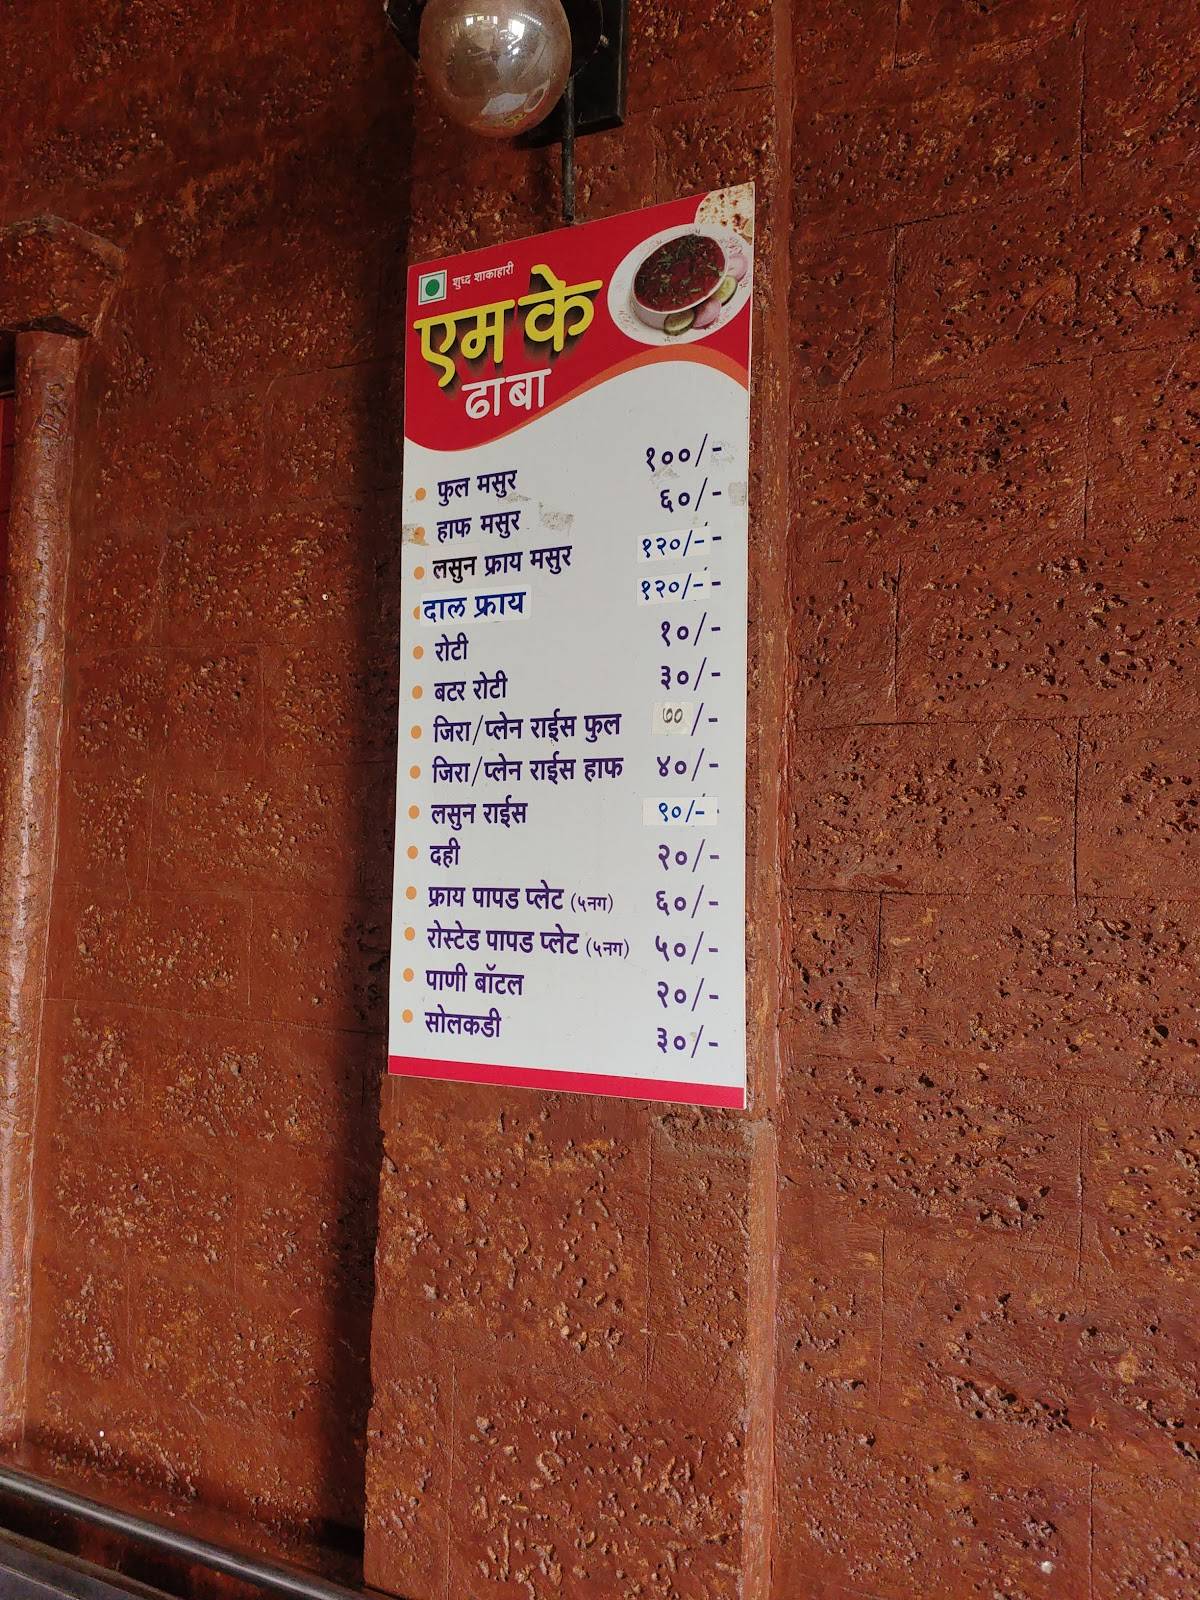 शुध्द शाकाहारी
एम के
ढाबा
फुल मसुर १००/-
हाफ मसुर ६०/-
लसुन फ्राय मसुर १२०/--
दाल फ्राय १२०/--
रोटी १०/-
बटर रोटी ३०/-
जिरा/प्लेन राईस फुल ७०/-
जिरा/प्लेन राईस हाफ ४०/-
लसुन राईस ९०/-
दही २०/-
फ्राय पापड प्लेट (५नग) ६०/-
रोस्टेड पापड प्लेट (५नग) ५०/-
पाणी बॉटल २०/-
सोलकडी ३०/-